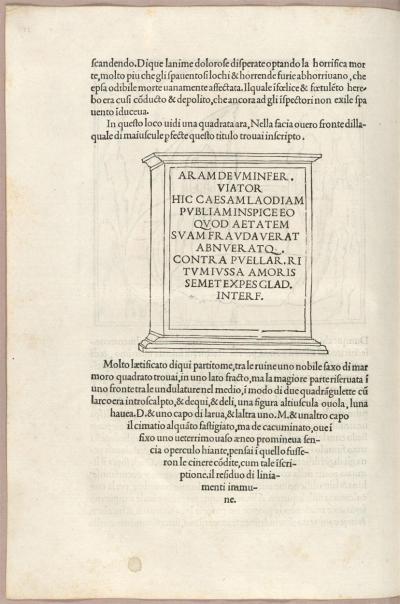 scandendo. Diqueſ lanime doloroſe diſperate optando la horrifica mor
te, molto piu che gli ſpauentoſi lochi & horrende furie abhorriuano, che
epſa odibile morte uanamente affectata. Ilquale iſœlice & fœtulēto here-
bo era cuſi cōducto & depolito, che ancora ad gli iſpectori non exile ſpa
uento iduceua.
In queſto loco uidi una quadrata ara, Nella facia ouero fronte dilla-
quale di maiuſcule pfecte queſto titulo trouai inſcripto.
ARAM DEVM INFER.
VIATOR
HIC CAESAM LAODIAM
PVBLIAM INSPICE EO
QVOD AETATEM
SVAM FRAVDAVERAT
ABNVERATQ.
CONTRA PVELLAR. RI
TVM IVSSA AMORIS
SEMET EXPES GLAD.
INTERF.
Molto lætificato di qui partitome, tra le ruine uno nobile ſaxo di mar
moro quadrato trouai, in uno lato fracto, ma la magiore parte riſeruata ī
uno fronte tra le undulature nel medio, ī modo di due quadrāgulette cū
larco era introſcalpto, & dequi, & deli, una figura altiuſcula ouola, luna
hauea. D. & uno capo di larua, & laltra uno. M. & unaltro capo
il cimatio alquāto faſtigiato, ma de cacuminato, oue ī
fixo uno ueterrimo uaſo æneo promineua ſen-
cia operculo hiante, penſai ī quello fuſſe-
ron le cinere cōdite, cum tale iſcri-
ptione. il reſiduo di linia-
menti immu-
ne.